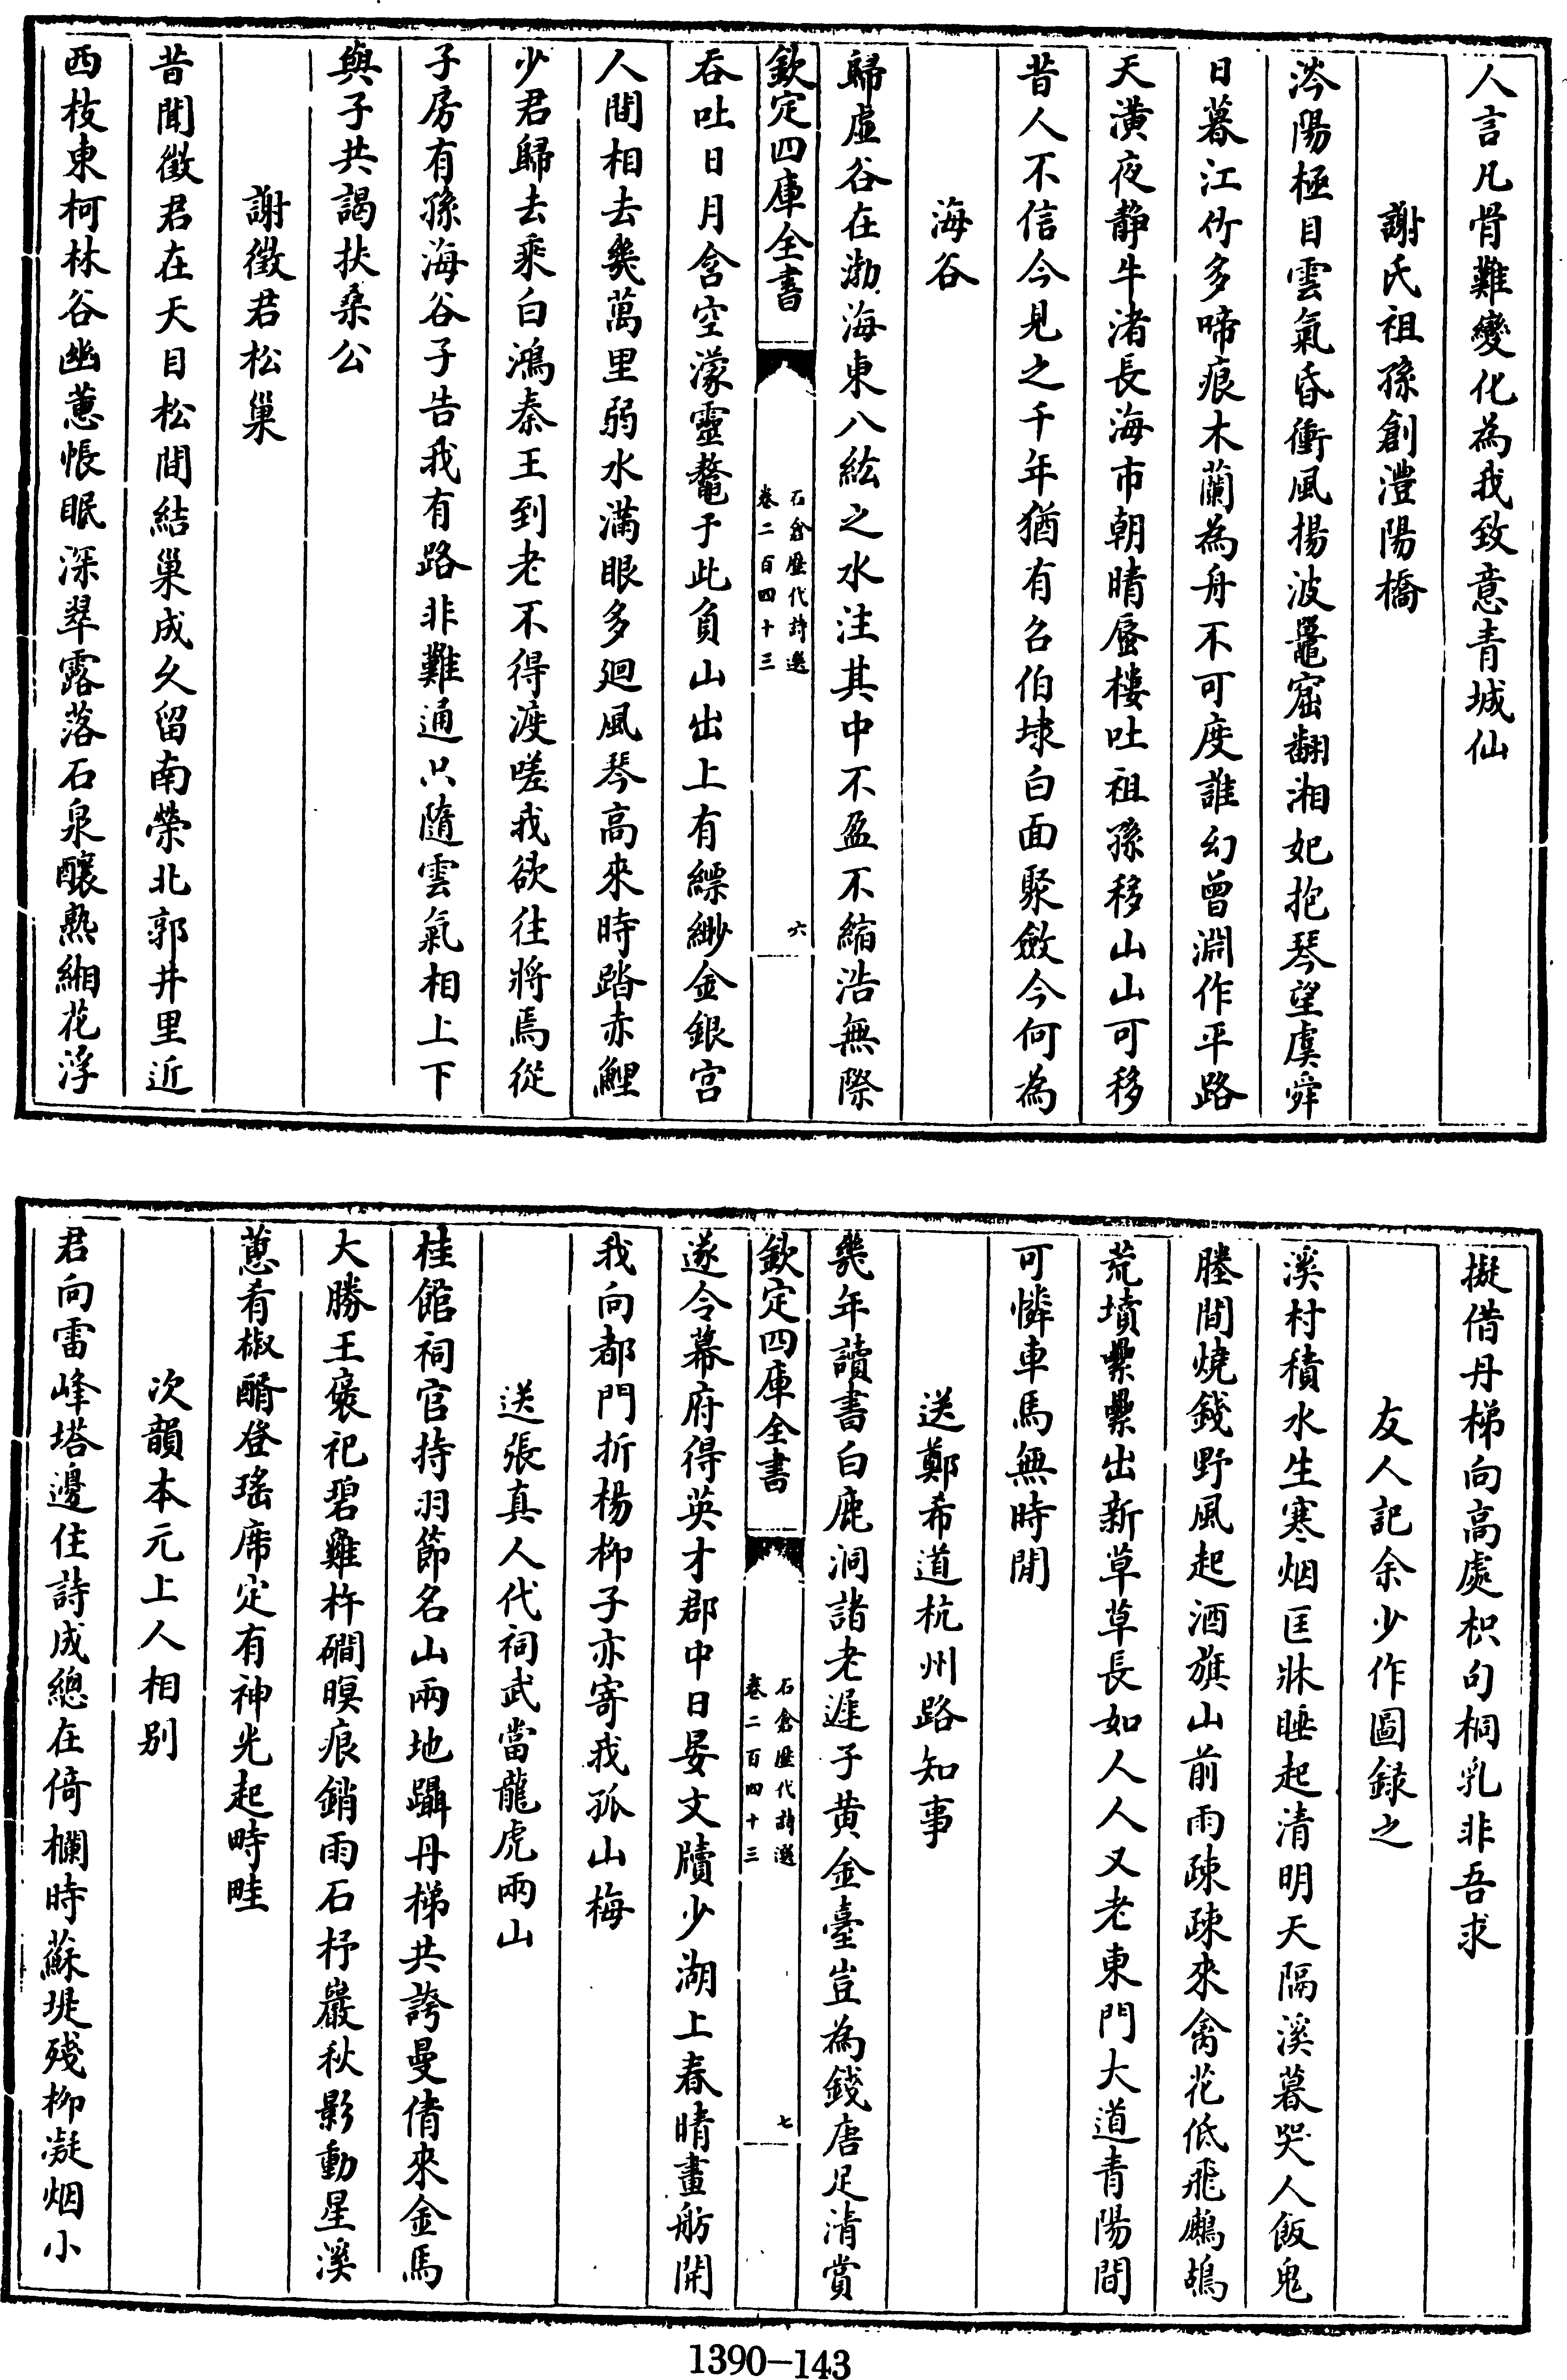 人言凡骨難變化為我致意青城仙
謝氏祖孫創澧陽橋
涔陽極目雲氣昏衝風揚波鼉窟翻湘妃抱琴望虞舜
日暮江竹多啼痕木蘭為舟不可度誰幻曾淵作平路
天潢夜靜牛渚長海市朝晴蜃樓吐祖孫移山山可移
昔人不信今見之千年猶有召伯埭白面聚斂今何為
海谷
歸虛谷在渤海東八紘之水注其中不盈不縮浩無際
欽定四庫全書
石倉歷代詩選
卷二百四十三
六
吞吐日月含空濛靈鼇于此負山出上有縹緲金銀宮
人間相去幾萬里弱水滿眼多廻風琴高來時踏赤鯉
少君歸去乘白鴻秦王到老不得渡嗟我欲往將焉從
子房有孫海谷子告我有路非難通只隨雲氣相上下
與子共謁扶桑公
謝徵君松巢
昔聞徵君在天目松間結巢成久留南榮北郭井里近
西枝東柯林谷幽蕙帳眠深翠露落石泉釀熟緗花浮
擬借丹梯向高處枳句桐乳非吾求
友人記余少作圖録之
溪村積水生寒烟匡牀睡起清明天隔溪暮哭人飯鬼
塍間燒錢野風起酒旗山前雨疎疎來禽花低飛鷓鴣
荒墳纍纍出新草草長如人人又老東門大道青陽間
可憐車馬無時閒
送鄭希道杭州路知事
幾年讀書白鹿洞諸老遲子黄金臺豈為錢唐足清賞
欽定四庫全書
石倉歷代詩選
卷二百四十三
七
遂令幕府得英才郡中日晏文牘少湖上春晴畫舫開
我向都門折楊柳子亦寄我孤山梅
送張真人代祠武當龍虎兩山
桂館祠官持羽節名山兩地躡丹梯共誇曼倩來金馬
大勝王褒祀碧雞杵磵暝痕銷雨石杼巖秋影動星溪
蕙肴椒醑登瑤席定有神光起畤畦
次韻本元上人相别
君向雷峰塔邊住詩成總在倚欄時蘇堤殘柳凝烟小
1390-143